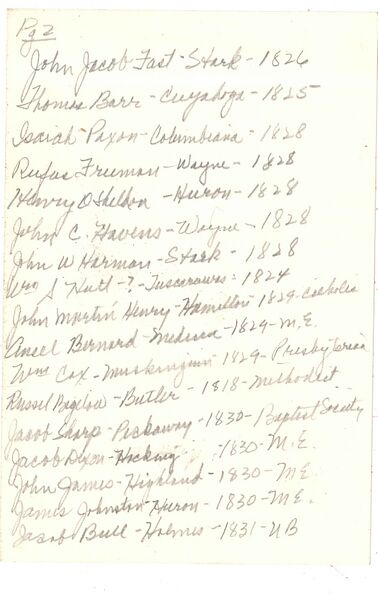 Pg 2
John Jacob Fast - Stark - 1826
Thomas Barr - Cuyahoga - 1825
Isaiah Paxon - Columbiana - 1828
Rufus Freeman - Wayne - 1828
Henry O Sheldon - Huron - 1828
John C. Havens - Wayne - 1828
John W Harman - Stark - 1828
Wm S - ? - Tuscarawas - 1824
John Martin Henry - Hamilton 1829 - Catholic
Ansel Bernard - Medina - 1829 - M.E.
Wm Cox - Muskingum 1829 - Presbyterian
Russel Bigelow - Butler - 1818 - Methodist
Jacob Sharp - Pickaway - 1830 - Baptist Society
Jacob Dixon - Hocking - 1830 - M.E.
John James - Highland - 1830 - M.E.
James Johnston - Huron - 1830 - M.E.
Jacob Bull - Holmes - 1831 - UB